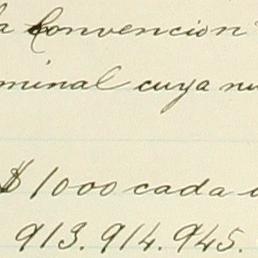 a Convencion
minal cuya nu
$1000 cada u
913. 914. 945.